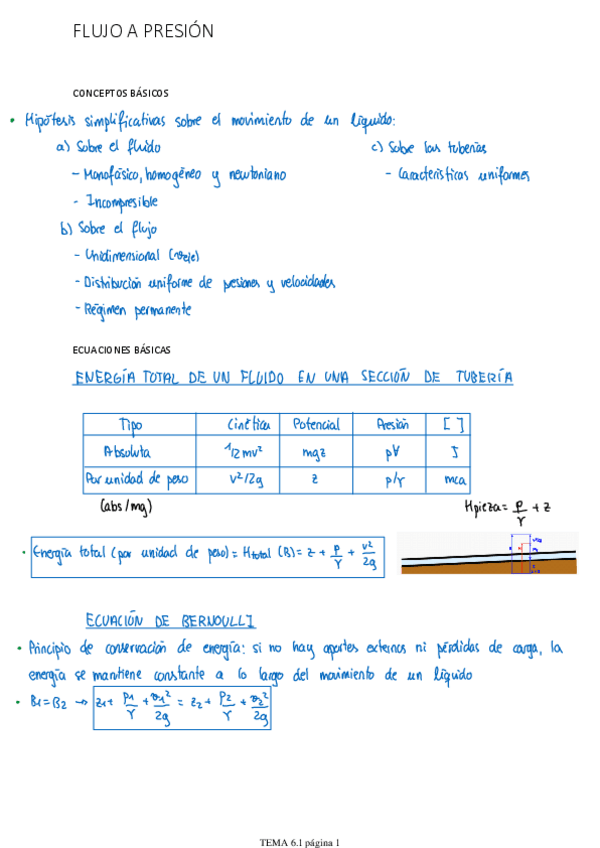 FLUJO A PRESIÓN
CONCEPTOS BÁSICOS
• Hipótesis simplificativas sobre el movimiento de un líquido:
a) Sobre el fluido
- Monofásico, homogéneo y newtoniano
- Incompresible
b) Sobre el flujo
- Unidimensional (
- Distribución uniforme de presiones y velocidades
- Régimen permanente
c) Sobre las tuberías
- Características uniformes
ECUACIONES BÁSICAS
ENERGÍA TOTAL DE UN FLUIDO EN UNA SECCIÓN DE TUBERÍA
Tipo Cinética Potencial Presión [ ]
Absoluta 1/2mv² mgz p∀ J
Por unidad de peso v²/2g z p/γ mca
(abs/mg) Hpieza = p/γ + z
• Energía total (por unidad de peso) = Htotal (B) = z + p/γ + v²/2g
ECUACIÓN DE BERNOULLI
• Principio de conservación de energía: si no hay aportes externos ni pérdidas de carga, la
energía se mantiene constante a lo largo del movimiento de un líquido
• B1 = B2 → z1 + p1/γ + v1²/2g = z2 + p2/γ + v2²/2g
TEMA 6.1 página 1